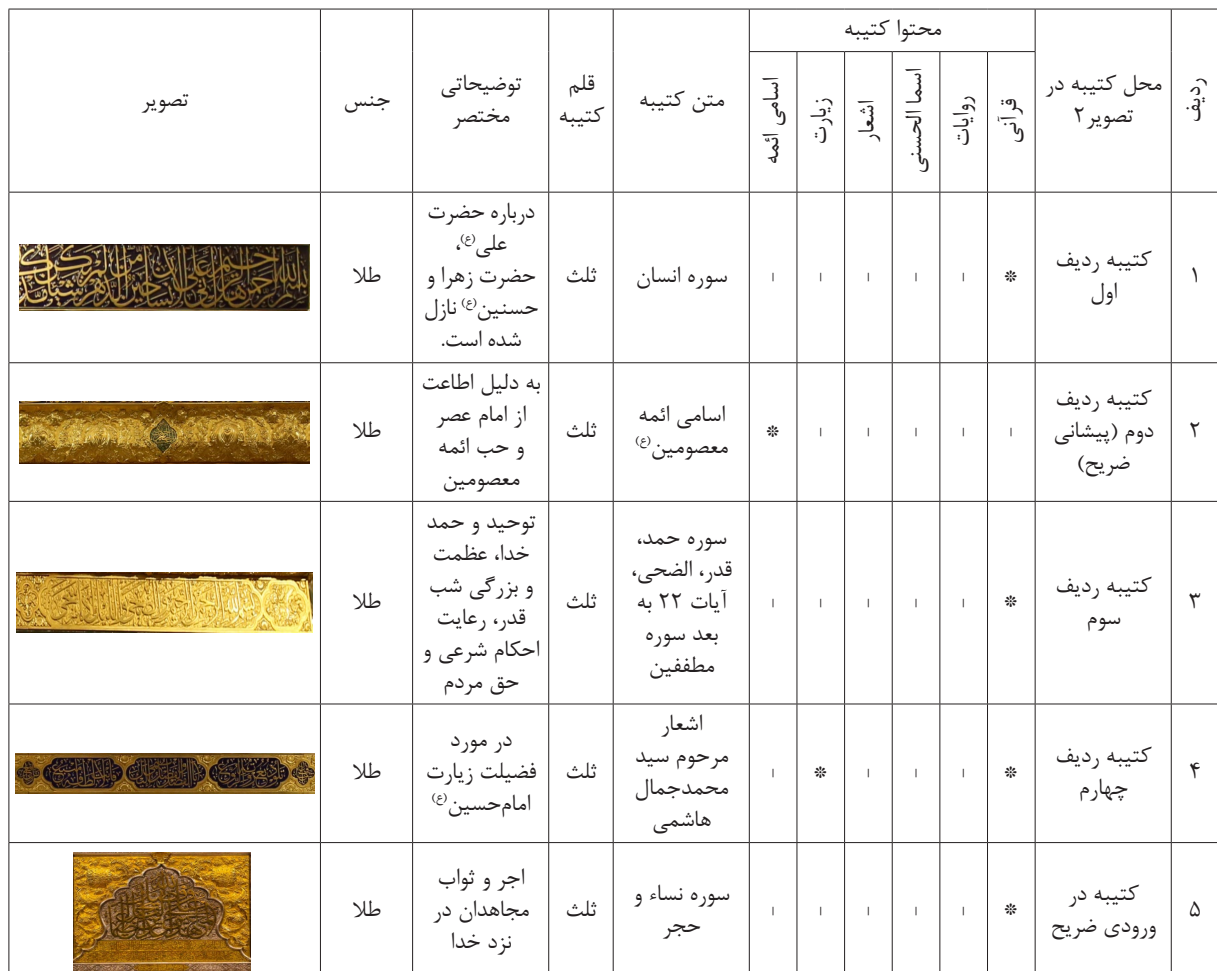 ردیف
محل کتیبه در
تصویر۲
محتوا کتیبه
قرآنی
روایات
اسما الحسنی
اشعار
زیارت
اسامی ائمه
متن کتیبه
قلم
کتیبه
توضیحاتی
مختصر
جنس
تصویر
۱
کتیبه ردیف
اول
* - - - - -
سوره انسان
ثلث
درباره حضرت
علی(ع)،
حضرت زهرا و
حسنین(ع) نازل
شده است.
طلا
۲
کتیبه ردیف
دوم (پیشانی
ضریح)
- - - - - *
اسامی ائمه
معصومین(ع)
ثلث
به دلیل اطاعت
از امام عصر
و حب ائمه
معصومین
طلا
۳
کتیبه ردیف
سوم
* - - - - -
سوره حمد،
قدر، الضحی،
آیات ۲۲ به
بعد سوره
مطففین
ثلث
توحید و حمد
خدا، عظمت
و بزرگی شب
قدر، رعایت
احکام شرعی و
حق مردم
طلا
۴
کتیبه ردیف
چهارم
* - - - * -
اشعار
مرحوم سید
محمدجمال
هاشمی
ثلث
در مورد
فضیلت زیارت
امام‌حسین(ع)
طلا
۵
کتیبه در
ورودی ضریح
* - - - - -
سوره نساء و
حجر
ثلث
اجر و ثواب
مجاهدان در
نزد خدا
طلا